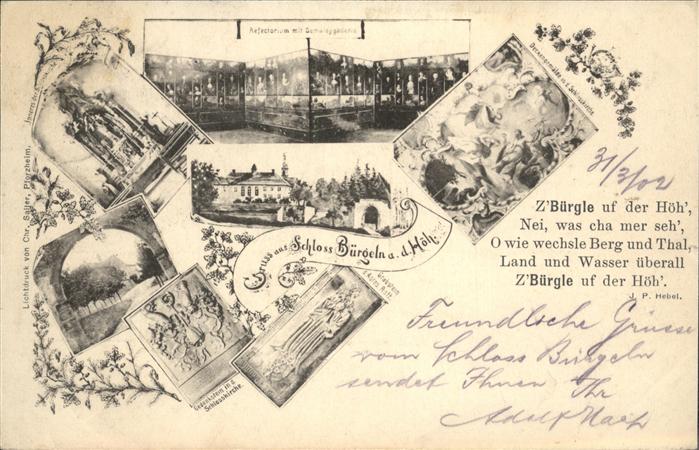 Refectorium mit Gemäldegallerie
Deckengemälde in d. Schlosskirche.
Lichtdruck von Chr. Saller, Pforzheim.
Gruss aus Schloss Bürgeln a. d. Höh'
Gedenkstein in d.
Schlosskirche.
31/3/02
Z'Bürgle uf der Höh',
Nei, was cha mer seh',
O wie wechsle Berg und Thal,
Land und Wasser überall
Z'Bürgle uf der Höh'.
J. P. Hebel.
Freundlsche Grüsse
vom Schloss Bürgeln
sendet Ihnen Ihr
Adolf